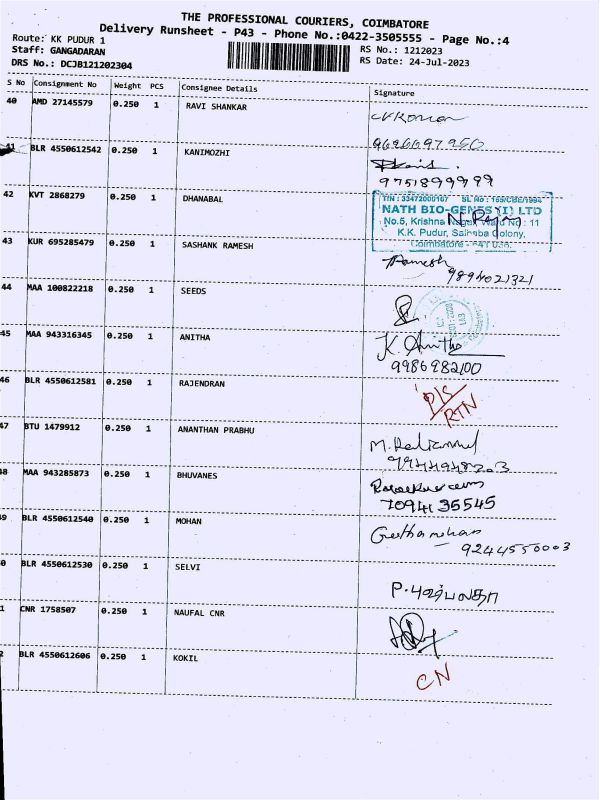 THE PROFESSIONAL COURIERS, COIMBATORE
Delivery Runsheet - P43 - Phone No.:0422-3505555 - Page No.:4
Route: KK PUDUR 1
RS No.: 1212023
Staff: GANGADARAN
RS Date: 24-Jul-2023
DRS No.: DCJB121202304
S No Consignment No Weight PCS Consignee Details Signature
40 AMD 27145579 0.250 1 RAVI SHANKAR
41 BLR 4550612542 0.250 1 KANIMOZHI
9751899999
42 KVT 2868279 0.250 1 DHANABAL
NATH BIO-GENES (I) LTD
No.5, Krishna Nagar, Ward No : 11
K.K. Pudur, Saibaba Colony,
43 KUR 695285479 0.250 1 SASHANK RAMESH
Ramesh
9894021321
44 MAA 100822218 0.250 1 SEEDS
45 MAA 943316345 0.250 1 ANITHA
K. Anitha
9986982100
46 BLR 4550612581 0.250 1 RAJENDRAN
D/S
RTN
47 BTU 1479912 0.250 1 ANANTHAN PRABHU
48 MAA 943285873 0.250 1 BHUVANES
7094135545
49 BLR 4550612540 0.250 1 MOHAN
Geethamohan
9244550003
0 BLR 4550612530 0.250 1 SELVI
1 CNR 1758507 0.250 1 NAUFAL CNR
2 BLR 4550612606 0.250 1 KOKIL
CN